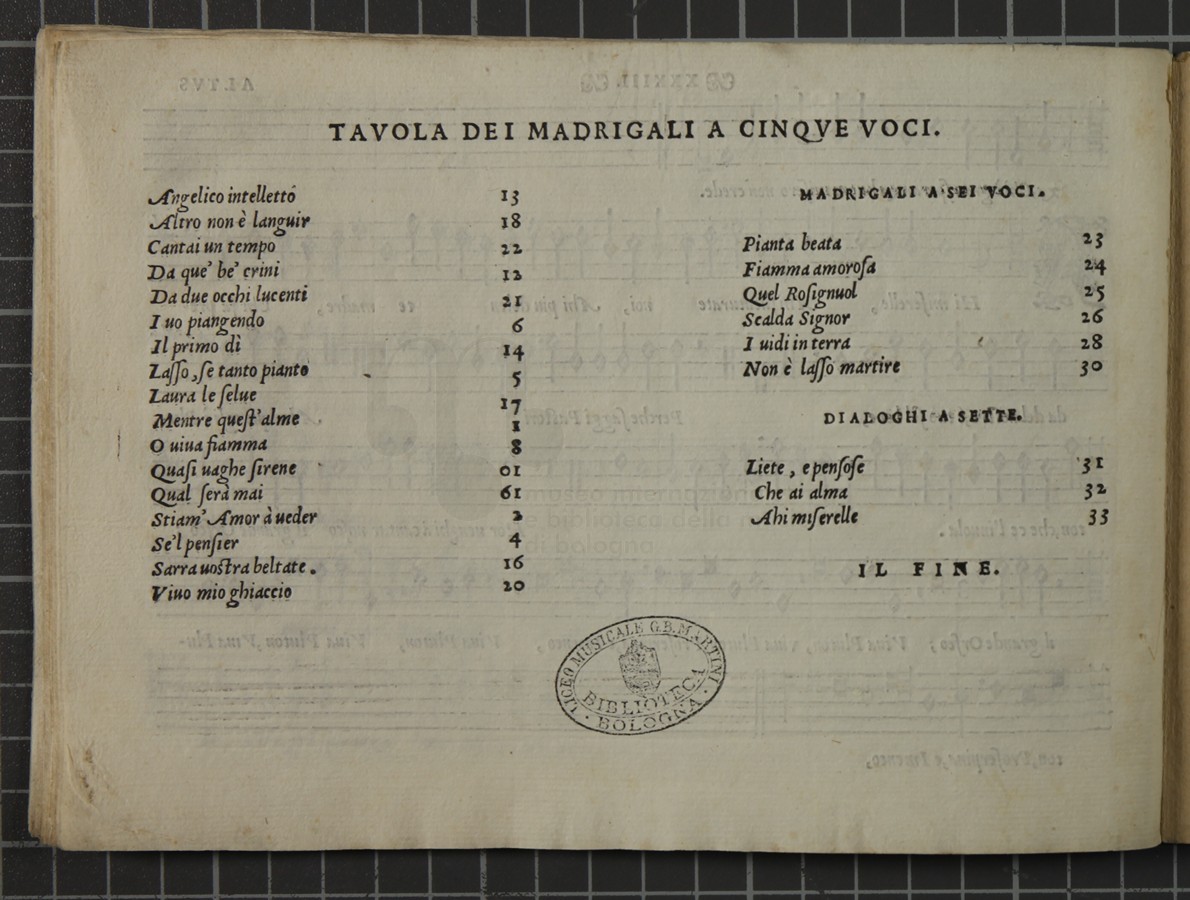 TAVOLA DEI MADRIGALI A CINQVE VOCI.
Angelico intelletto 13
Altro non è languir 18
Cantai un tempo 22
Da que' be' crini 12
Da due occhi lucenti 21
I uo piangendo 6
Il primo dì 14
Laſſo, ſe tanto pianto 5
Laura le ſelue 17
Mentre queſt'alme 1
O uiua fiamma 8
Quaſi uaghe ſirene 01
Qual ſerà mai 61
Stiam' Amor à ueder 2
Se'l penſier 4
Sarra uoſtra beltate. 16
Viuo mio ghiaccio 20
MADRIGALI A SEI VOCI.
Pianta beata 23
Fiamma amoroſa 24
Quel Roſignuol 25
Scalda Signor 26
I uidi in terra 28
Non è laſſo martire 30
DIALOGHI A SETTE.
Liete, e penſoſe 31
Che ai alma 32
Ahi miſerelle 33
IL FINE.
LICEO MUSICALE G.B. MARTINI
BIBLIOTECA
BOLOGNA
museo internazion
e biblioteca della m
di bologna